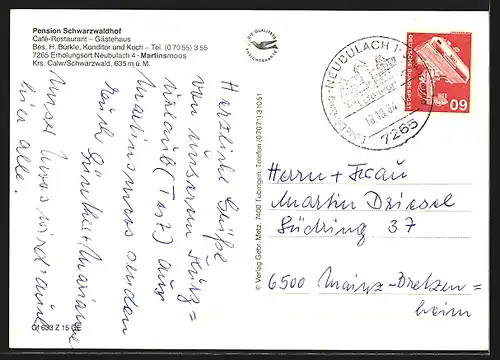 Pension Schwarzwaldhof
Café-Restaurant – Gästehaus
Bes. H. Bürkle, Konditor und Koch – Tel. (0 70 55) 3 55
7265 Erholungsort Neubulach 4 - Martinsmoos
Krs. Calw/Schwarzwald, 635 m ü. M.
DIE QUALITÄTS
ANSICHTSKARTE
NEUBULACH 1
7265
DEUTSCHE BUNDESPOST
60
Herzliche Grüße
von unserem Kurz=
urlaub (Test) aus
Martinsmoos senden
Euch Günther + Marianne
Unser Moos wird' nun
hier alle.
© Verlag Gebr. Metz, 7400 Tübingen, Telefon (0 70 71) 3 10 51
Herrn + Frau
Martin Driesel
Südring 37
6500 Mainz-Bretzen=
heim
Z 15